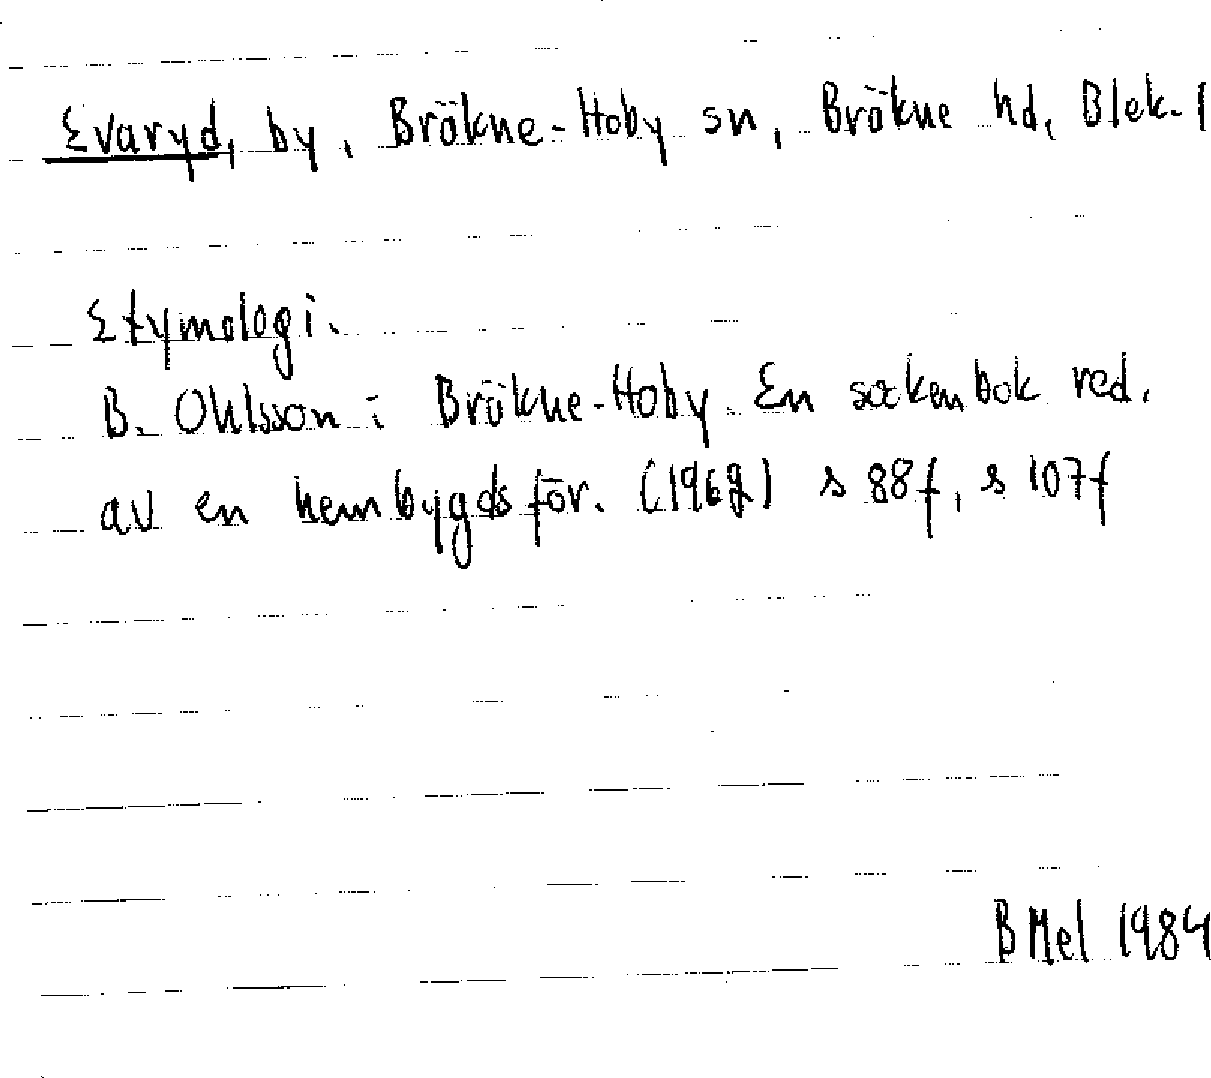 Evaryd, by, Bräkne-Hoby sn, Bräkne hd, Blek. l
Etymologi.
B. Ohlsson i Bräkne-Hoby. En sockenbok red.
av en hembygdsför. s 88f, s 107f
B Mel 1984